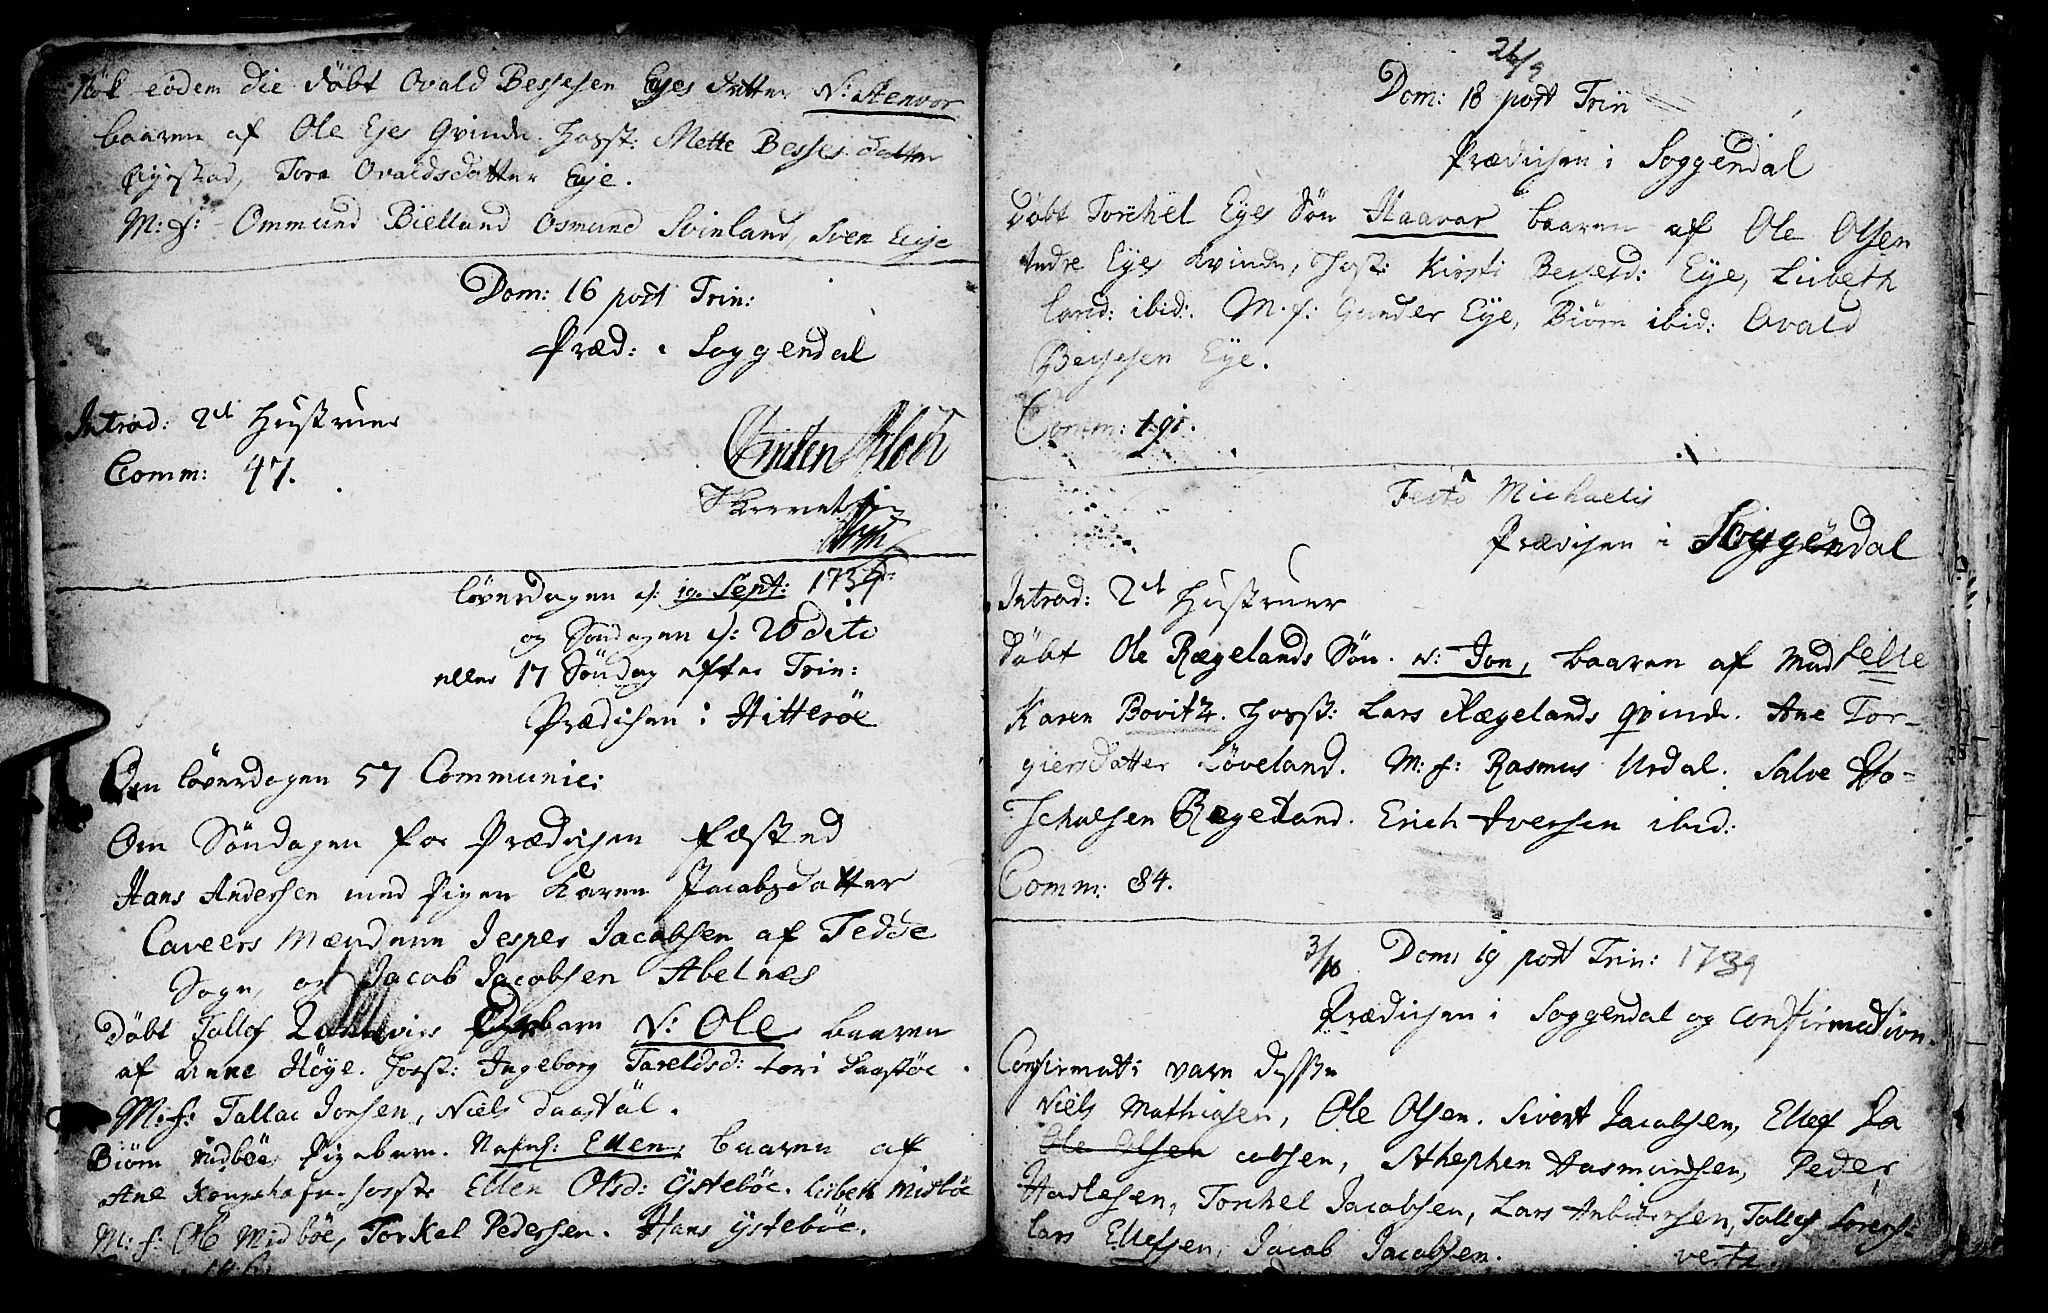 Nok eodem die döbt Ovald Bessesen Eyes datter N: Stenvor
baaren af Ole Eyes Qvinde. Hosst: Mette Besses datter
Tora Ovaldsdatter Eye.
M: f: Ommund Bielland Osmund Svinland, Sven Eye
Dom: 16 post Trin:
Præd: i Soggendal
Introd: 2de Hustruer
Comm: 47.
Skrevet
Löverdagen d: 19. Sept: 1739
og Söndagen d: 20 dito
eller 17 Söndag efter Trin:
Prædichen i Hitteröe
Om Löverdagen 57 Communic:
Om Söndagen for Prædichen fæsted
Hans Andersen med Pigen Karen Jacobsdatter
Caveers Mændene Jesper Jacobsen af Fedde
Sogn, og Jacob Jacobsen Abelnes
Döbt Tallef barn N: Ole baaren
af Anne Höye. Hosst: Ingeborg Tareldsd: Lori
M: f: Tallac Jonsen, Niels Daastöl.
Biörn Midböe Pigebarn. Nafnl: Ellen, baaren af
Ane Kongshafn. Hosst: Ellen Olsd: Ysteböe. Lisbeth Midböe
M: f: Ole Midböe, Torkel Pedersen. Hans Ysteböe.
26/9
Dom: 18 post Trin
Prædichen i Soggendal
Döbt Torchel Eyes Sön Haavar baaren af Ole Olsen
Indre Eyes Kvinde, Hosst: Kirsti Bessesd: Eye, Lisbeth
Larsd: ibid: M: f: Gunder Eye, Biörn ibid: Ovald
Bessesen Eye.
Comm: 191.
Festo Michaelis
Prædichen i Soggendal
Introd: 2de Hustruer
Döbt Ole Rægelands Sön. N: Jon, baaren af Madselle
Karen Bovitz. Hosst: Lars Rægelands qvinde. Ane Tor-
giersdatter Löveland. M: f: Rasmus Urdal. Salve Ho-
Schulsen Rægeland. Erich Iversen ibid:
Comm: 84.
3/10 Dom: 19 post Trin: 1739
Prædichen i Soggendal og Confirmation.
Confirmati vare disse
Niels Mathiasen, Ole Olsen. Sivert Jacobsen, Ellef Ja
Ole Olsen cobsen, Sthephen Aasmundsen, Peder
Torchel Jacobsen, Lars Anbiörnsen, Tallef Sörens:
Lars Ellefsen, Jacob Jacobsen.
verte